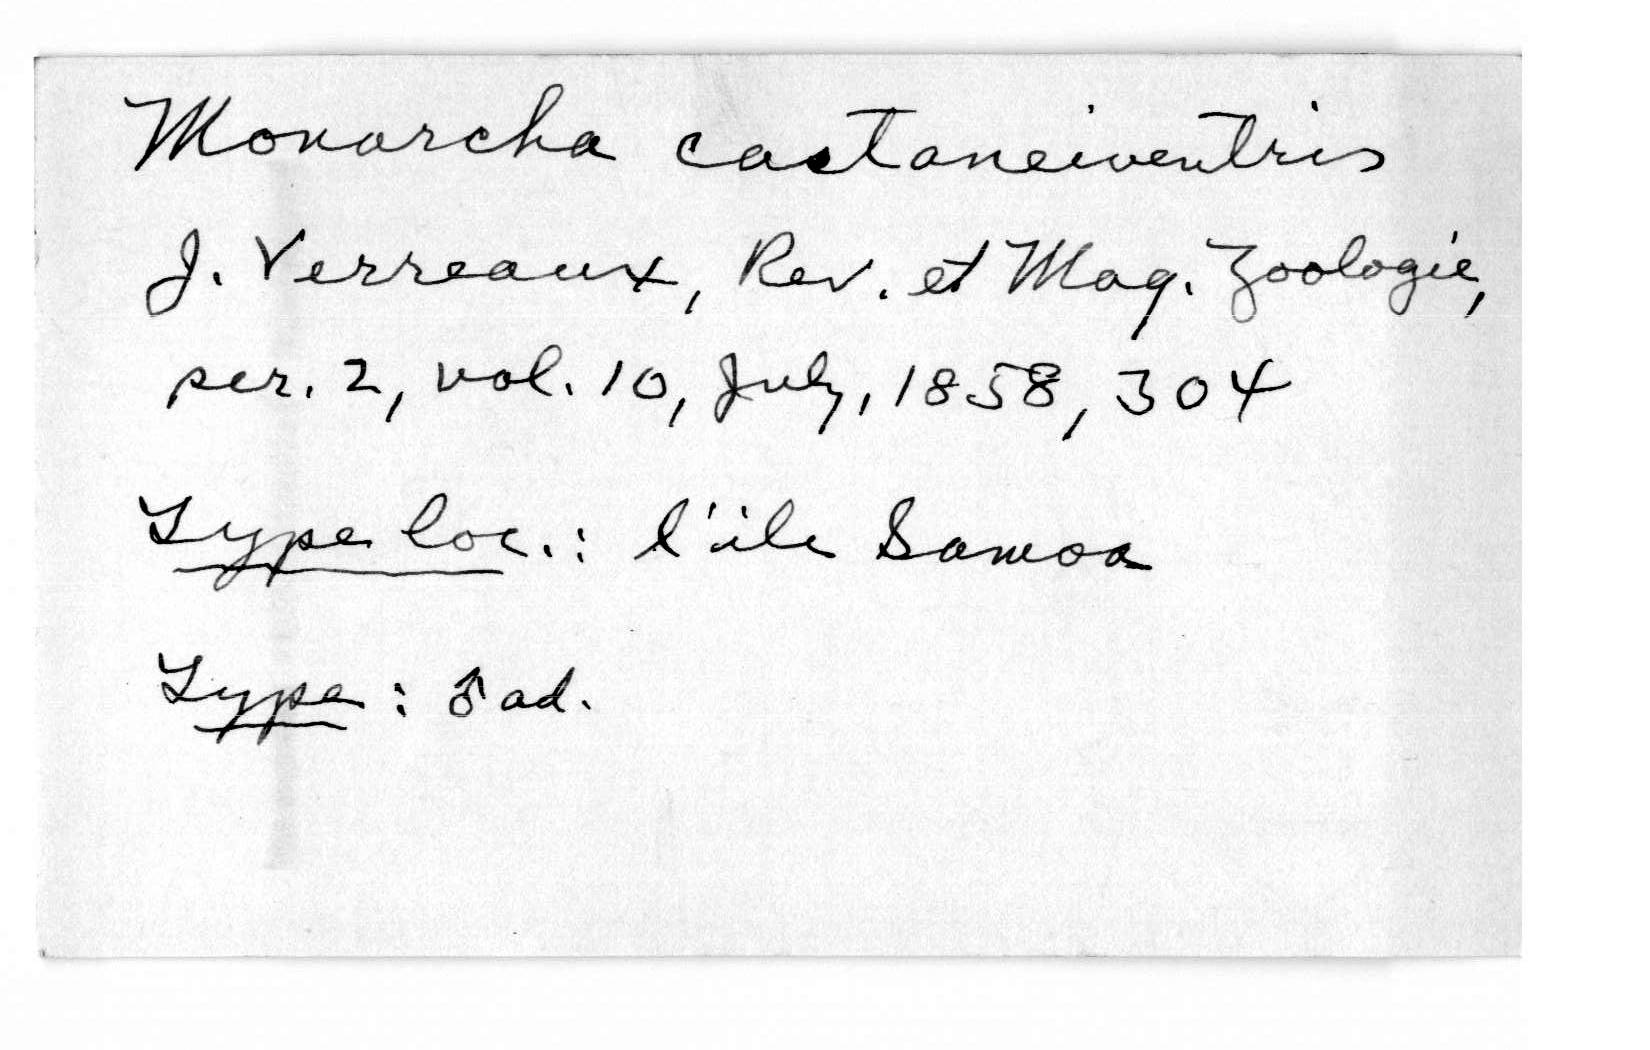 Monarcha castaneiventris
J. Verreaux, Rev. et Mag. Zoologie,
ser. 2, vol. 10, July, 1858, 304
Type loc.: l'ile Samoa
Type: ♂ ad.